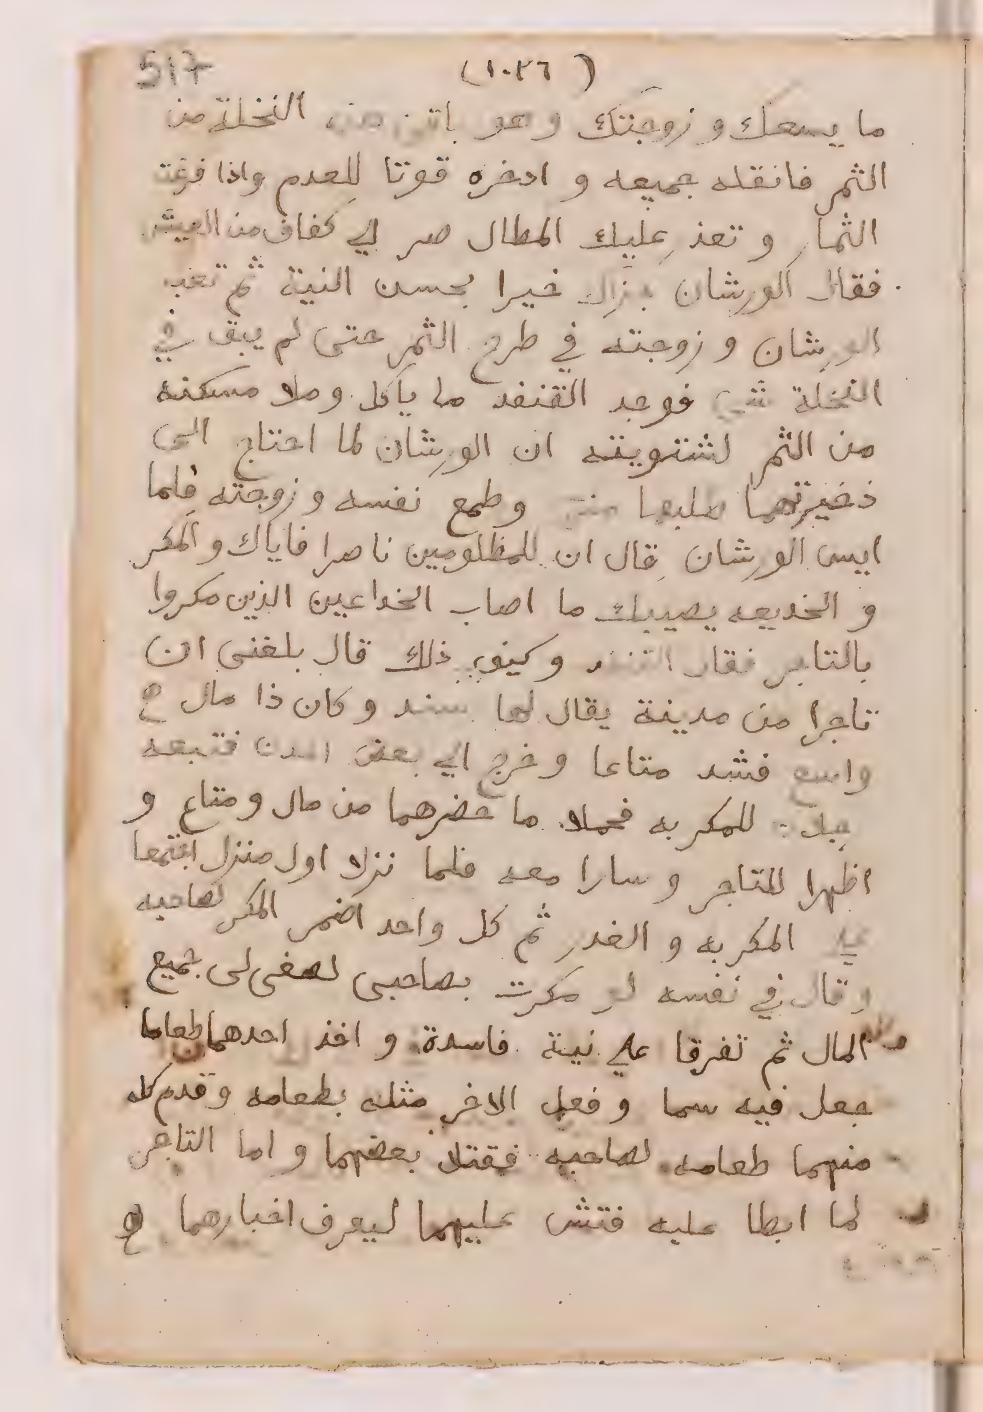 517
(١٠٢٦)
ما يسعك و زوجتك وهو باقى هذه النخلة من
الثمر فانقله جميعه و ادخره قوتا للعدم واذا فرغت
الثمار و تعذر عليك المطال صر الي كفاف من العيش
فقال الورشان جزاك خيرا بحسن النية ثم تعب
الورشان و زوجته في طرح الثمر حتى لم يبق في
النخلة شي فوجد القنفد ما ياكل وملا مسكنه
من الثمر لشتويته ان الورشان لما احتاج الى
ذخيرتهما طلبها منه وطمع نفسه و زوجته فلما
ايس الورشان قال ان للمظلومين ناصرا فاياك و المكر
و الخديعه يصيبك ما اصاب الخداعين الذين مكروا
بالتاجر فقال القنفد و كيف ذلك قال بلغنى ان
تاجرا من مدينة يقال لها سند و كان ذا مال
واسع فشد متاعا و خرج الي بعض المدن فتبعه
للمكر به فحملا ما حضرهما من مال و متاع و
اظهرا للتاجر و سارا معه فلما نزلا اول منزل اجتمعا
علي المكر به و الغدر ثم كل واحد اضمر المكر لصاحبه
و قال في نفسه لو مكرت بصاحبى لصفى لى جميع
المال ثم تفرقا علي نية فاسدة و اخذ احدهما طعاما
جعل فيه سما و فعل الاخر مثله بطعامه و قدم كل
منهما طعامه لصاحبه فقتلا بعضهما و اما التاجر
لما ابطا عليه فتش عليهما ليعرف اخبارهما